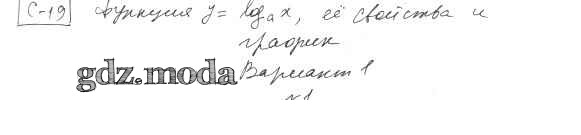 С-19 Функция y = logₐx, её свойства и
график
gdz.moda Вариант 1
№1